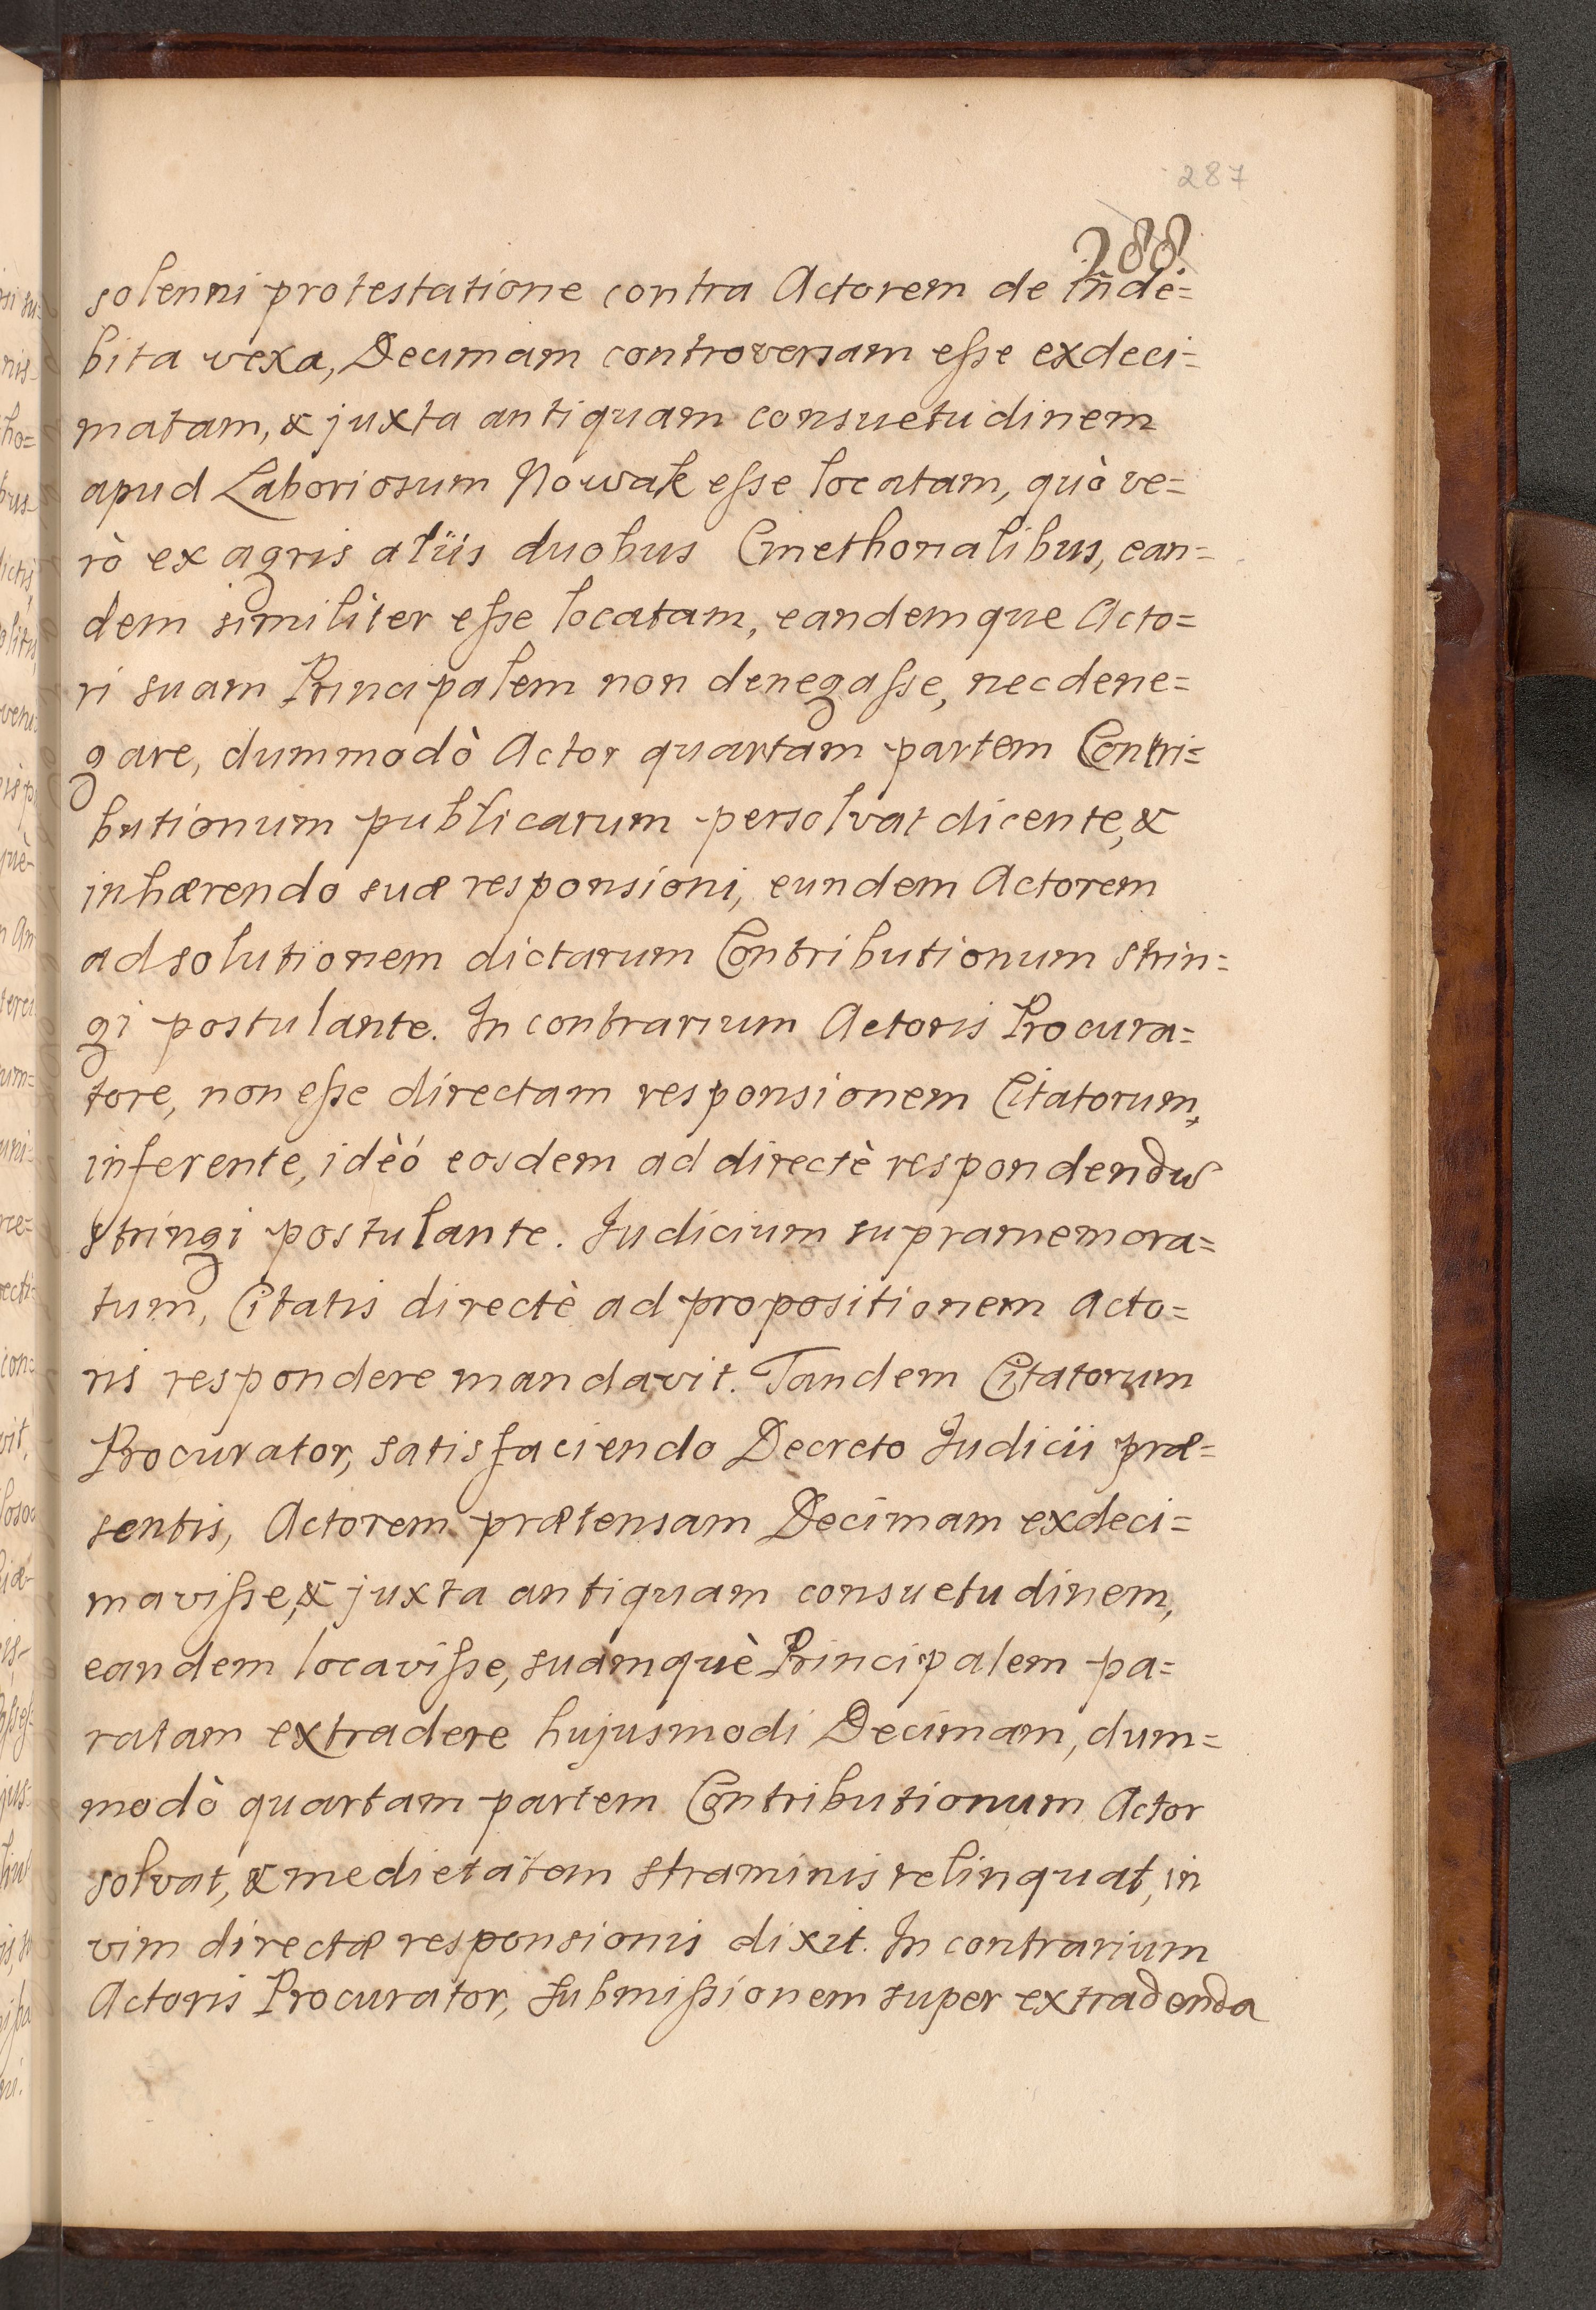 287
288
solenni protestatione contra Actorem de inde=
bita vexa, Decimam controversam esse exdeci=
matam, & juxta antiquam consuetudinem
apud Laboriosum Nowak esse locatam, quò ve=
rò ex agris aliis duobus Cmethonalibus, ean=
dem similiter esse locatam, eandemque Acto=
ri suam Principalem non denegasse, nec dene=
gare, dummodò Actor quartam partem Contri=
butionum publicarum persolvat dicente, &
inhærendo suæ responsioni, eundem Actorem
ad solutionem dictarum Contributionum strin=
gi postulante. In contrarium Actoris Procura=
tore, non esse directam responsionem Citatorum,
inferente, idèó eosdem ad directè respondendum
stringi postulante. Judicium supramemora=
tum, Citatis directè ad propositionem Acto=
ris respondere mandavit. Tandem Citatorum
Procurator, satisfaciendo Decreto Judicii præ=
sentis, Actorem prætensam Decimam exdeci=
mavisse, & juxta antiquam consuetudinem,
eandem locavisse, suamquè Principalem pa=
ratam extradere hujusmodi Decimam, dum=
modò quartam partem Contributionum Actor
solvat, & medietatem straminis relinquat, in
vim directæ responsionis dixit. In contrarium
Actoris Procurator, submissionem super extradenda